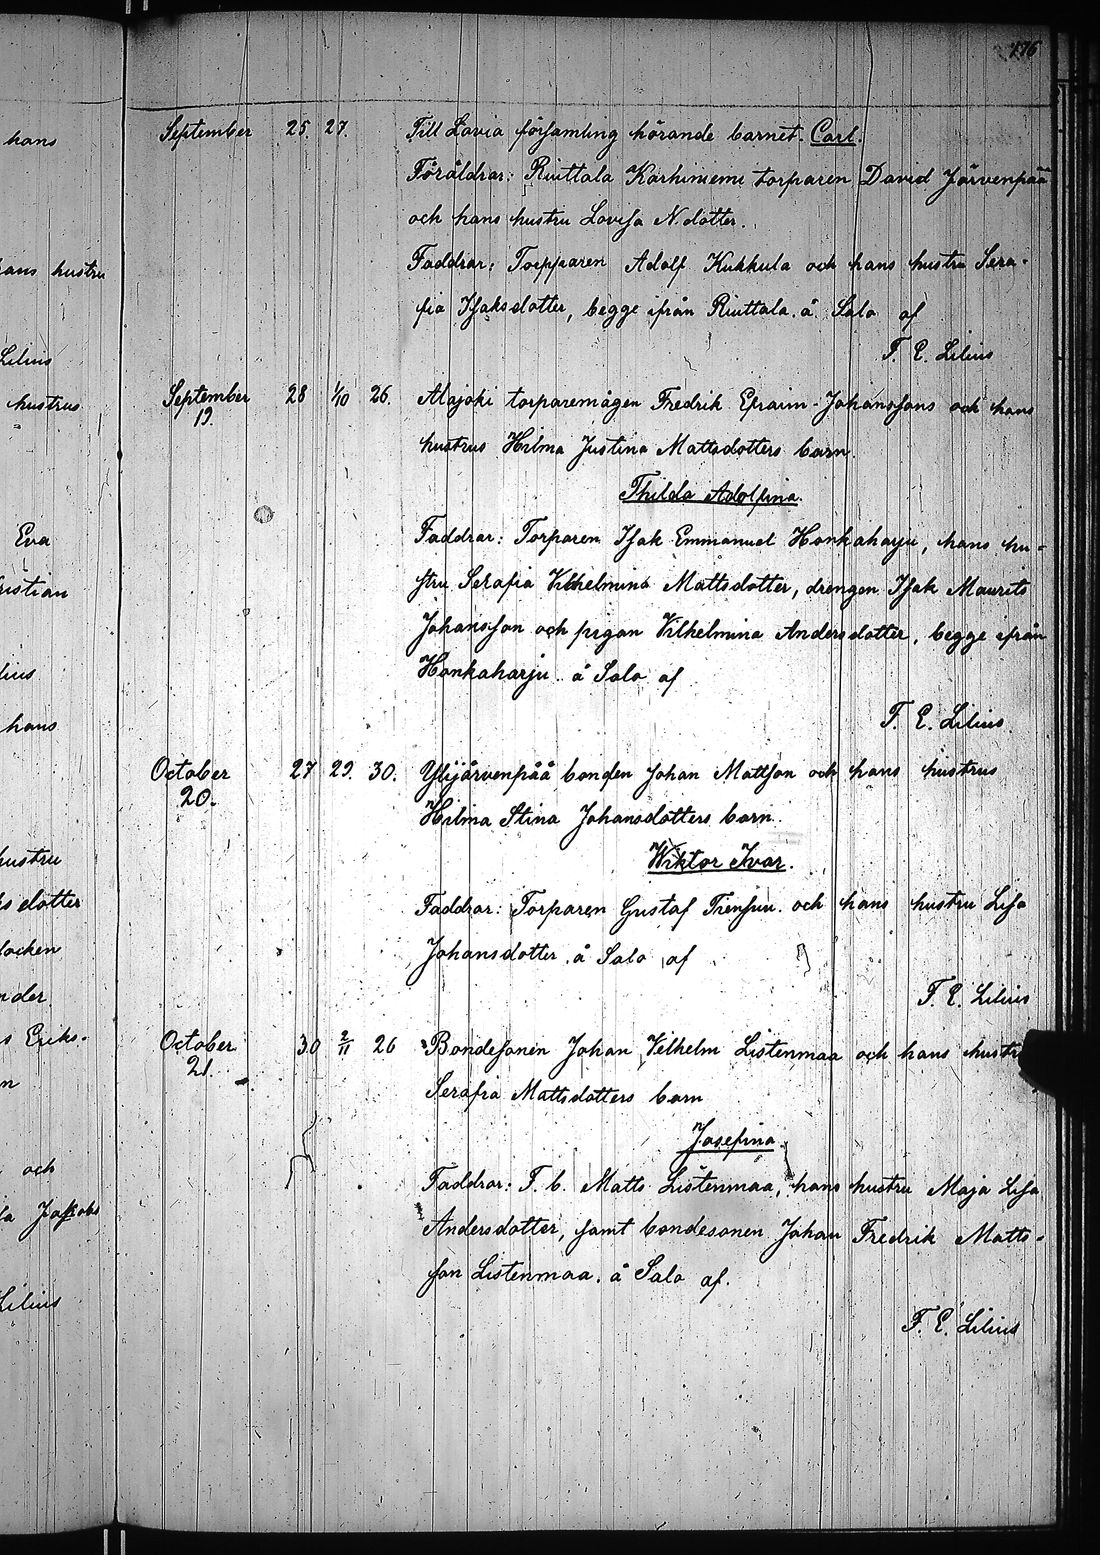 176
hans
hans hustru
Lilius
hustrus
Eva
ristian
lius
hans
hustru
ks dotter
locken
nder.
s Eriks-
n
och
la Jakobs
Lilius
September 25. 27. Till Lavia församling hörande barnet. Carl.
Föräldrar: Riuttala Karhiniemi torparen David Järvenpää
och hans hustru Lovisa N. dotter.
Faddrar: Torpparen Adolf Kukkula och hans hustru Sera-
fia Isaksdotter, begge ifrån Riuttala. å Salo af
F. E. Lilius
September 28 1/10 26. Alajoki torparemågen Fredrik Efraim Johanssons och hans
19.
hustrus Hilma Justina Mattsdotters barn.
Thilda Adolfina.
Faddrar: Torparen Isak Emmanuel Honkaharju, hans hu-
stru Serafia Vilhelmina Mattsdotter, drengen Isak Maurits
Johansson och pigan Vilhelmina Andersdotter, begge ifrån
Honkaharju å Salo af
F. E. Lilius
October 27 29. 30. Ylijärvenpää bonden Johan Mattson och hans hustrus
20.
Hilma Stina Johansdotters barn.
Wiktor Ivar.
Faddrar: Torparen Gustaf och hans hustru Lisa
Johansdotter å Salo af
F. E. Lilius
October 30 2/11 26 Bondesonen Johan Vilhelm Listenmaa och hans hustru
21.
Serafia Mattsdotters barn
Josefina.
Faddrar: F. b. Matts Listenmaa, hans hustru Maja Lisa
Andersdotter, samt bondesonen Johan Fredrik Matts-
son Listenmaa. å Salo af.
F. E. Lilius